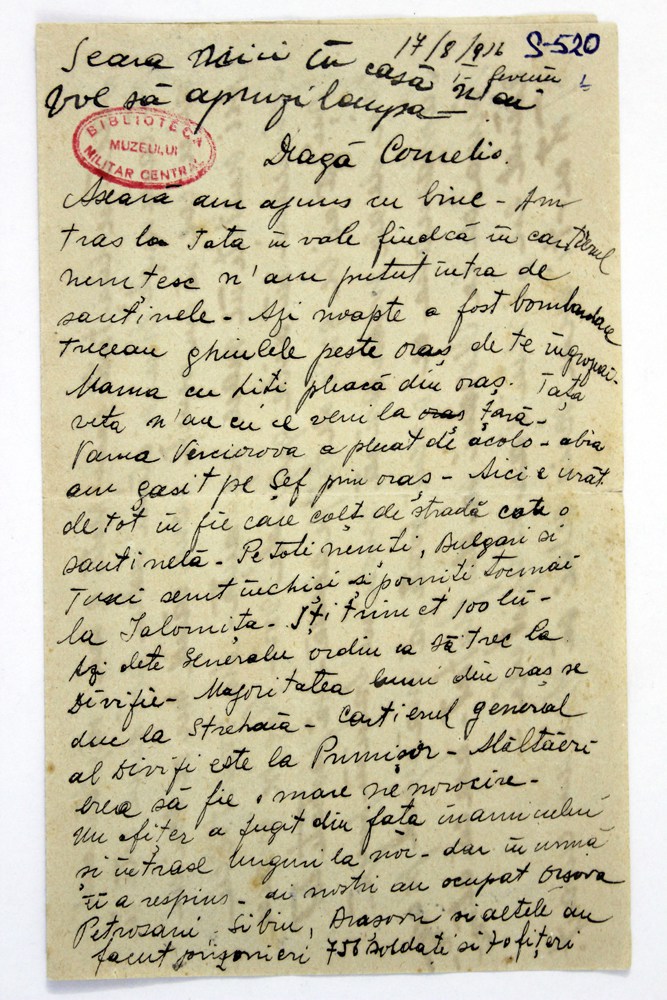 17/8/916 S-520
Seara nici în casă n'ai
voe să aprinzi lampa —
BIBLIOTECA
MUZEULUI
MILITAR CENTRAL
Dragă Cornelio.
Aseară am ajuns cu bine – Am
tras la Tata în vale findcă în cartierul
nemtesc n'am putut intra de
santinele – Azi noapte a fost bombardare
treceau ghiulele peste oraș de te îngrozeai –
Mama cu Lili pleacă din oraș. Tața
veta n'au cu ce veni la oraș țară –
Vama Verciorova a plecat de acolo – abia
am gasit pe Șef prin oraș – Aici e urât
de tot în fie care colt de stradă cate o
santinelă – Pe toti nemti, Bulgari si
Turci sunt închiși și porniți tocmai
la Ialomița – Iți trimet 100 lei –
Azi dete Generalu ordin ca să trec la
Divifie – Majoritatea lumi din oraș se
duc la Strehaia – Cartierul general
al Divifi este la Prunișor –
erea să fie o mare nenorocire –
Un ofițer a fugit din fata inamicului
și intrase Unguri la noi – dar în urmă
ii a respins – ai nostri au ocupat Orșova
Petrosani, Sibiu, Brasovu si altele au
facut prizonieri 756 soldati si 70 fițeri